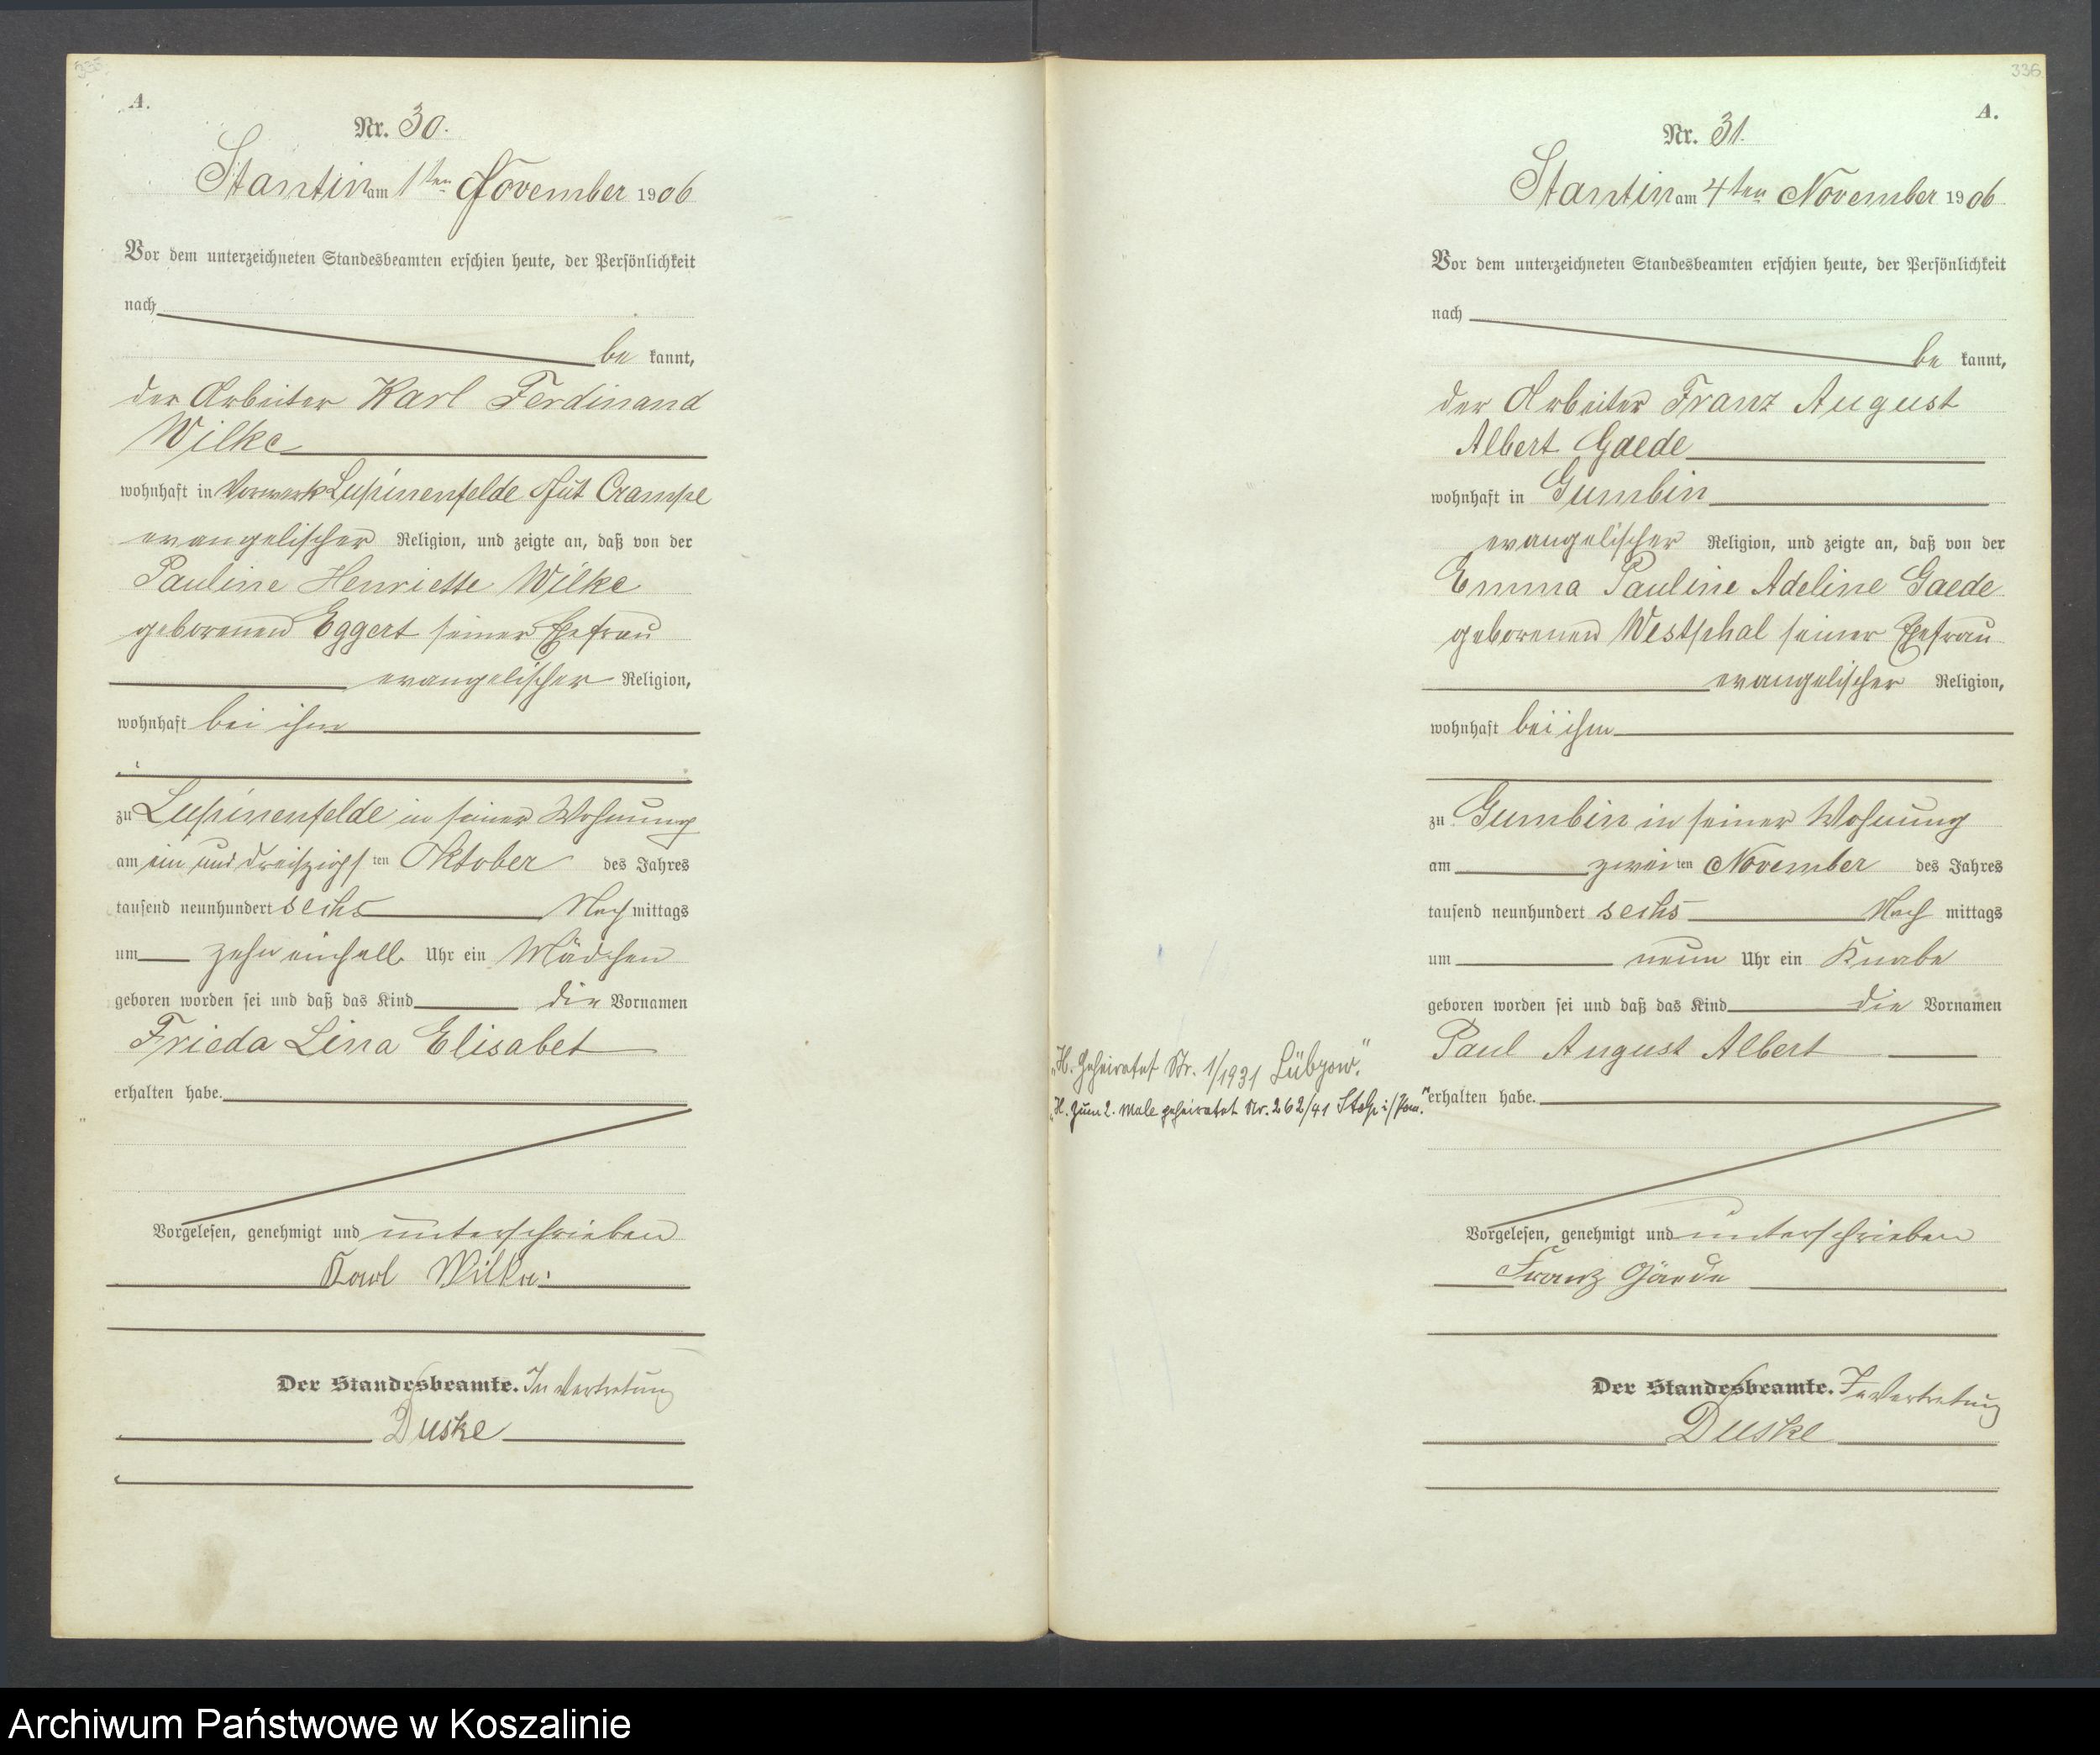 335.
A.
Nr. 30.
Stantin am 1ten November 1906
Vor dem unterzeichneten Standesbeamten erschien heute, der Persönlichkeit
nach
be kannt,
der Arbeiter Karl Ferdinand
Wilke
wohnhaft in Vorwerk Lupinenfelde Gut Crampe
evangelischer Religion, und zeigte an, daß von der
Pauline Henriette Wilke
geborenen Eggert seiner Ehefrau
evangelischer Religion,
wohnhaft bei ihm
zu Lupinenfelde in seiner Wohnung
am ein und dreißigsten Oktober des Jahres
tausend neunhundert sechs Nachmittags
um zehn einhalb Uhr ein Mädchen
geboren worden sei und daß das Kind die Vornamen
Frieda Lina Elisabet
erhalten habe.
Vorgelesen, genehmigt und unterschrieben
Karl Wilke.
Der Standesbeamte. In Vertretung
Duske
336
A.
Nr. 31.
Stantin am 4ten November 1906
Vor dem unterzeichneten Standesbeamten erschien heute, der Persönlichkeit
nach
be kannt,
der Arbeiter Franz August
Albert Gaede
wohnhaft in Gumbin
evangelischer Religion, und zeigte an, daß von der
Emma Pauline Adeline Gaede
geborenen Westphal seiner Ehefrau
evangelischer Religion,
wohnhaft bei ihm
zu Gumbin in seiner Wohnung
am zweiten November des Jahres
tausend neunhundert sechs Nach mittags
um neun Uhr ein Knabe
geboren worden sei und daß das Kind die Vornamen
Paul August Albert
erhalten habe.
„H. Geheiratet Nr. 1/1931 Lübzow."
„H. Zum 2. Male geheiratet Nr. 262/41 Stolp i/Pom."
Vorgelesen, genehmigt und unterschrieben
Franz Gäede
Der Standesbeamte. In Vertretung
Duske
Archiwum Państwowe w Koszalinie